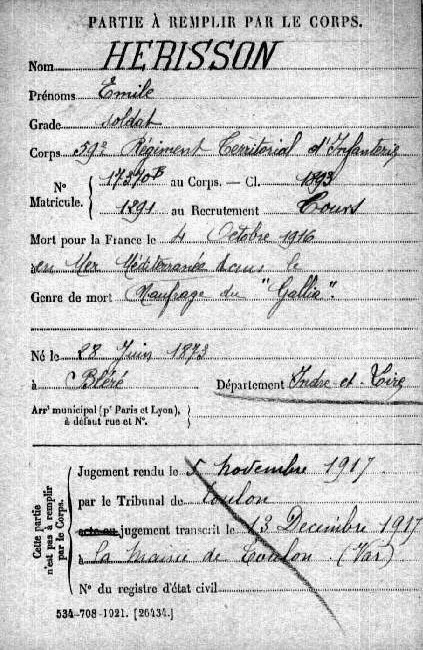 PARTIE À REMPLIR PAR LE CORPS.
Nom HERISSON
Prénoms Emile
Grade soldat
Corps 59e Régiment Territorial d'Infanterie
Nº Matricule. 17370B au Corps. — Cl. 1893
1891 au Recrutement Tours
Mort pour la France le 4 Octobre 1916
en Mer Méditerranée dans le
Genre de mort Naufrage du "Gallia".
Né le 28 Juin 1873
à Bléré Département Indre-et-Loire
Arrt municipal (pr Paris et Lyon),
à défaut rue et Nº.
Cette partie n'est pas à remplir par le Corps.
Jugement rendu le 5 novembre 1917
par le Tribunal de Toulon
acte ou jugement transcrit le 13 Decembre 1917
à la mairie de Toulon (Var)
Nº du registre d'état civil
534-708-1921. [26434.]